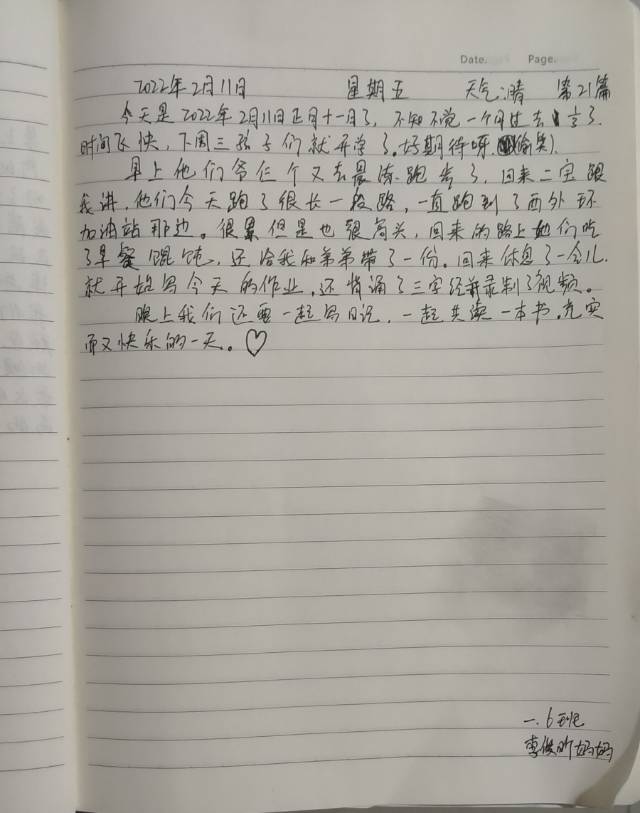 Date. Page.
2022年2月11日 星期五 天气:晴 第21篇
今天是2022年2月11日正月十一日了,不知不觉一个月过去了
时间飞快,下周三孩子们就开学了。好期待呀(偷笑)
早上他们爷仨个又去晨练跑步了,回来二宝跟
我讲,他们今天跑了很长一段路,一直跑到了西外环
加油站那边。很累但是也很开头,回来的路上她们吃
了早餐馄饨,还给我和弟弟带了一份。回来休息了一会儿
就开始写今天的作业,还背诵了三字经并录制了视频。
晚上我们还要一起写日记,一起共读一本书,充实
而又快乐的一天。♡
一.6班
李俊昕妈妈